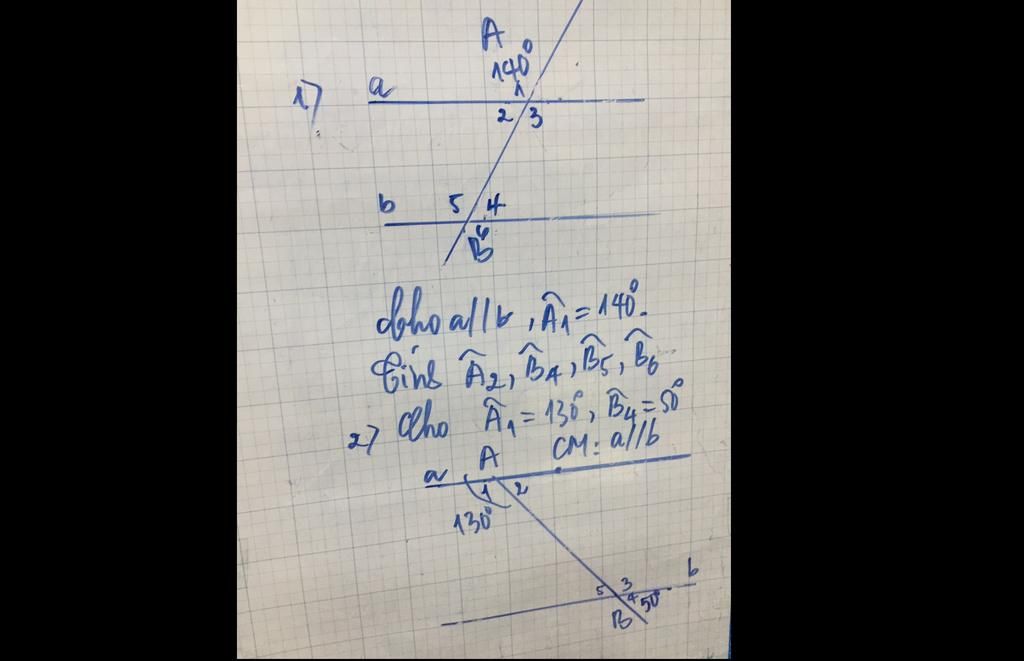 A
140°
1) a 1
2 3
b 5 4
6
B
Cho a//b, Â1 = 140°.
Tính Â2, B̂4, B̂5, B̂6
2) Cho Â1 = 130°, B̂4 = 50°
CM: a//b
a A
1 2
130°
5 3 b
4 50°
B